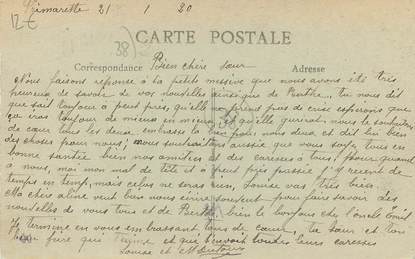 Rimarette 21 1 20
12 €
38
CARTE POSTALE
Correspondance Bien chère sœur Adresse
Nous faisons réponse à ta petite missive que nous avons été très
heureux de savoir de vos nouvelles ainsi que de Berthe tu nous dit
que sait toujour à peut près, qu'elle ne prend pas de crise esperons que
ça iras toujour de mieux en mieux et qu'elle guérirat nous le souhaitons
de cœur tous les deux embrasse la bien pour nous deux et dit lui bien
des choses pour nous; nous souhaitons aussie que vous soyez tous en
bonne santée bien nos amitiés et des caresses à tous; pour quand
à nous, moi mon mal de tête et à peut près passée j'y ressent de
temps en temp, mais celas ne seras rien, Louise vas très bien.
Ma chère aline veut bien nous ecrire souvent pour faire savoir des
nouvelles de vous tous et de Berthe bien le bonjour chez l'oncle Emil
Je termine en vous embrassant tous de cœur, ta sœur et ton
frère que t'aime et que t'envoit toutes leurs caresses
Louise et